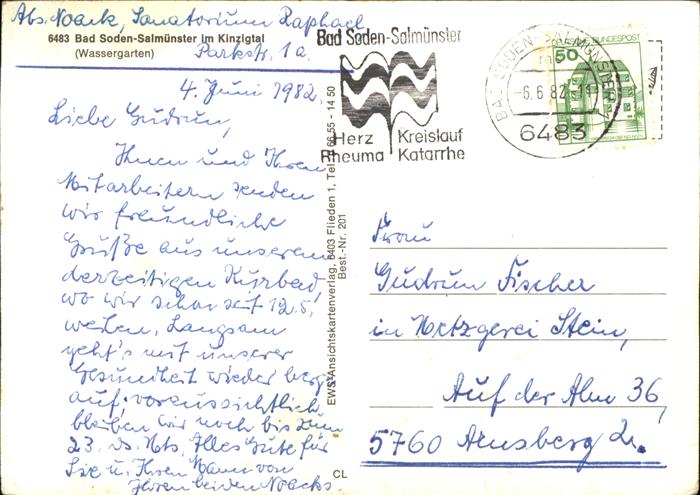 Abs. Noack, Sanatorium Raphael
6483 Bad Soden-Salmünster im Kinzigtal
(Wassergarten)
Parkstr. 1a.
4. Juni 1982
Liebe Gudrun,
Ihnen und Ihren
Mitarbeitern senden
wir freundliche
Grüße aus unserem
derzeitigen Kurbad,
wo wir schon seit 12.5.
weilen. Langsam
geht's mit unserer
Gesundheit wieder berg-
auf. Voraussichtlich
bleiben wir noch bis zum
23. ds. Mts. Alles Gute für
Sie u. Ihren Mann von
Ihren beiden Noacks.
EWS-Ansichtskartenverlag, 6403 Flieden 1, Tel. 0 66 55 - 14 50
Best.-Nr. 201
CL
Bad Soden-Salmünster
Herz Kreislauf
Rheuma Katarrhe
BAD SODEN-SALMÜNSTER 1
-6.6.82-
6483
DEUTSCHE BUNDESPOST
50
Frau
Gudrun Fischer
in Metzgerei Stein,
Auf der Alm 36,
5760 Arnsberg 2.